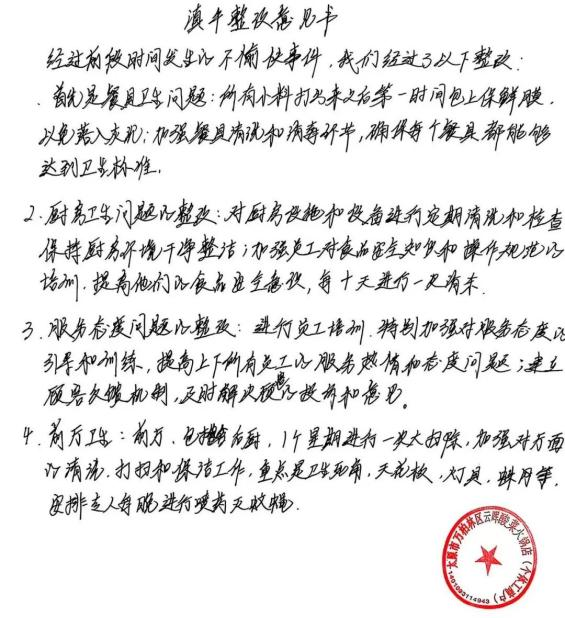 滇牛整改意见书
经过前段时间发生的不愉快事件，我们经过了以下整改：
．首先是餐具卫生问题：所有小料打出来之后第一时间包上保鲜膜，
以免落入灰尘；加强餐具清洗和消毒环节，确保每个餐具都能够
达到卫生标准。
2、厨房卫生问题的整改：对厨房设施和设备进行定期清洗和检查
保持厨房环境干净整洁；加强员工对食品安全知识和操作规范的
培训，提高他们的食品安全意识，每十天进行一次消杀．
3、服务态度问题的整改：进行员工培训．特别加强对服务态度的
引导和训练，提高上下所有员工的服务热情和态度问题；建立
顾客反馈机制，及时解决顾客的投诉和意见。
4、前厅卫生：前厅、包括后厨，1个星期进行一次大扫除，加强对方面
的清洗．打扫和保洁工作，重点是卫生死角，天花板，灯具，等，
安排专人每晚进行喷药灭蚊蝇．
太原市万柏林区云晖酸菜火锅店（个体工商户）